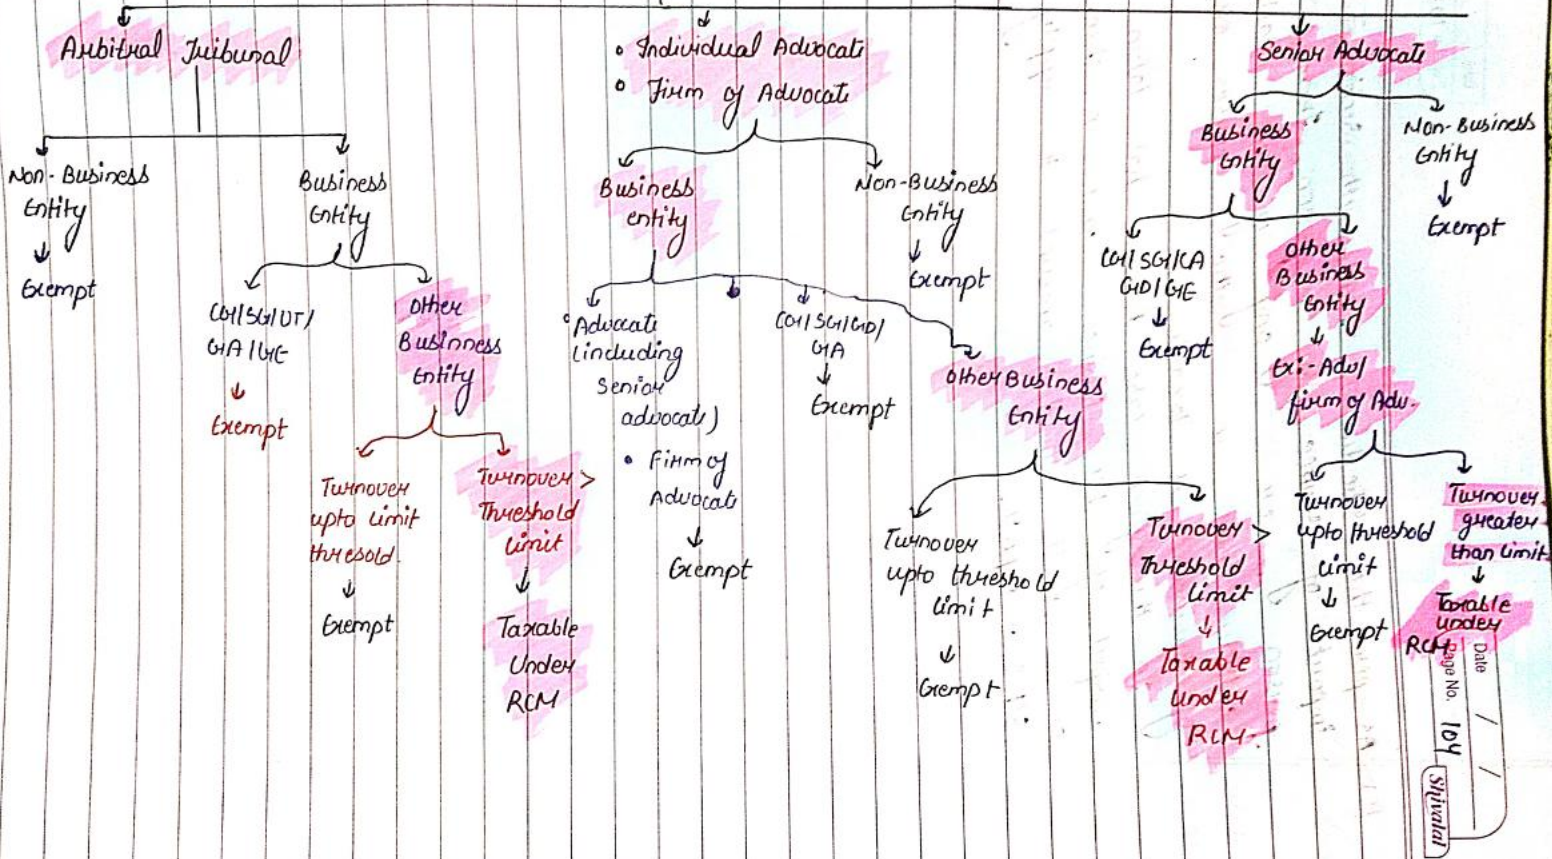 Arbitral Tribunal
Non-Business
Entity
Exempt
Business
Entity
CG/SG/UT/
GA/GE
Exempt
Other
Businness
Entity
Turnover
upto limit
thresold.
Exempt
Turnover >
Threshold
Limit
Taxable
Under
RCM
• Individual Advocate
• Firm of Advocate
Business
entity
• Advocate
(including
Senior
advocate)
• Firm of
Advocate
Exempt
CG/SG/GD/
GA
Exempt
Other Business
Entity
Turnover
upto threshold
limit
Exempt
Turnover >
Threshold
Limit
Taxable
Under
RCM
Non-Business
Entity
Exempt
Senior Advocate
Business
Entity
CG/SG/CA
GD/GE
Exempt
Other
Business
Entity
Ex:-Adv/
firm of Adv.
Turnover
upto threshold
limit
Exempt
Turnover
greater
than limit
Taxable
under
RCM
Non-Business
Entity
Exempt
Date / /
Page No. 104
Shivalal